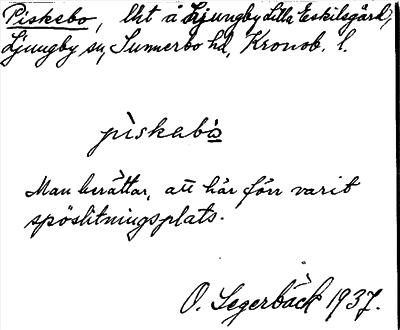 Piskebo, lht å Ljungby Lilla Eskilsgård,
Ljungby sn, Sunnerbo hd, Kronob. l.
pìskabo
Man berättar, att här förr varit
spöslitningsplats.
O. Segerbäck 1937.